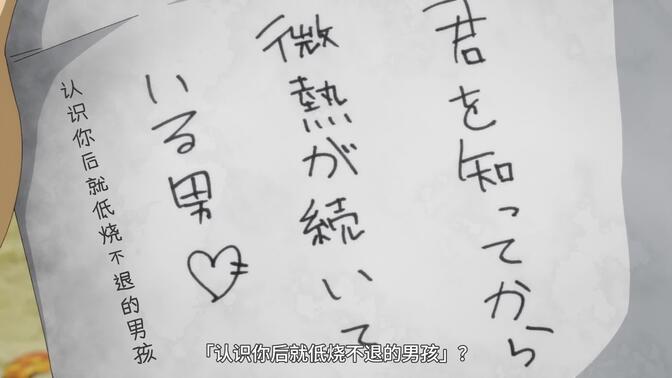 君を知ってから
微熱が続いて
いる男♡
认识你后就低烧不退的男孩
「认识你后就低烧不退的男孩」？